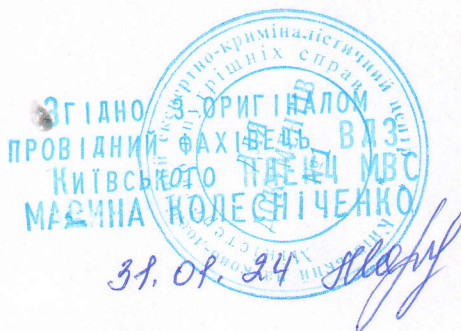 ЗГІДНО З ОРИГІНАЛОМ
ПРОВІДНИЙ ФАХІВЕЦЬ ВДЗ
КИЇВСЬКОГО НДЕКЦ МВС
МАРИНА КОЛЕСНІЧЕНКО
31.01.24
експертно-криміналістичний центр
внутрішніх справ
Для
документів